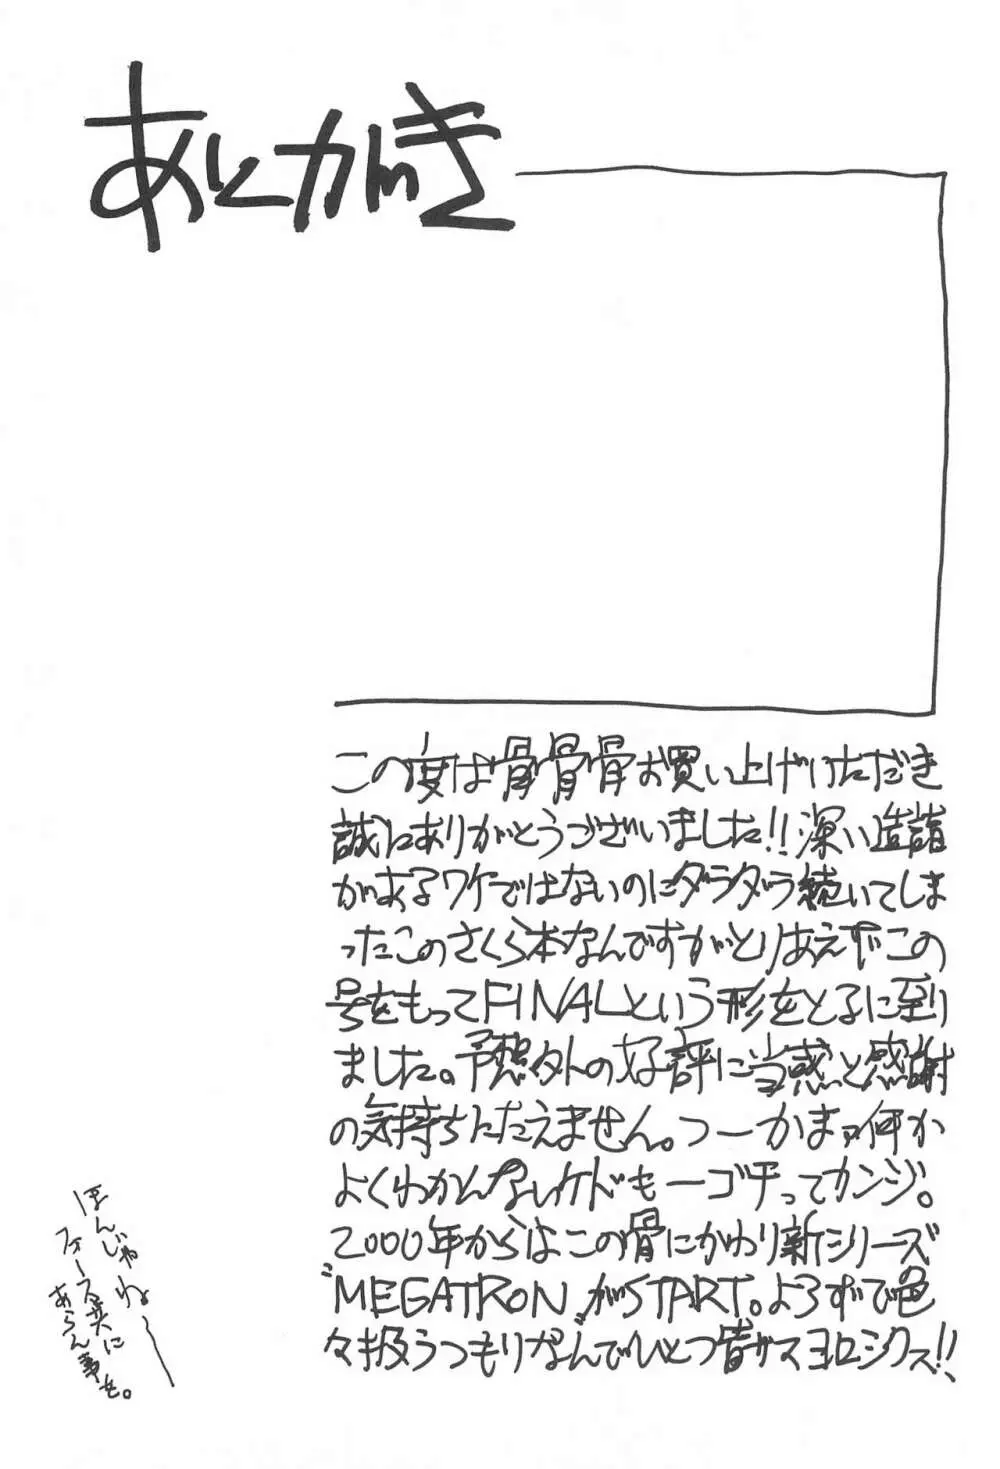 あとがき
この度は骨骨骨お買い上げいただき
誠にありがとうございました!!深い造詣
があるワケではないのにダラダラ続いてしま
ったこのさくら本なんですがとりあえずこの
号をもってFINALという形をとるに至り
ました。予想外の好評に当惑と感謝
の気持ちにたえません。つーかまァ何か
よくわかんないケドもーゴチってカンジ。
2000年からはこの骨にかわり新シリーズ
"MEGATRON"がSTART。よろずで色
々扱うつもりなんでひとつ皆サマヨロシクス!!
ほんじゃね〜
フォースと共に
あらん事を。